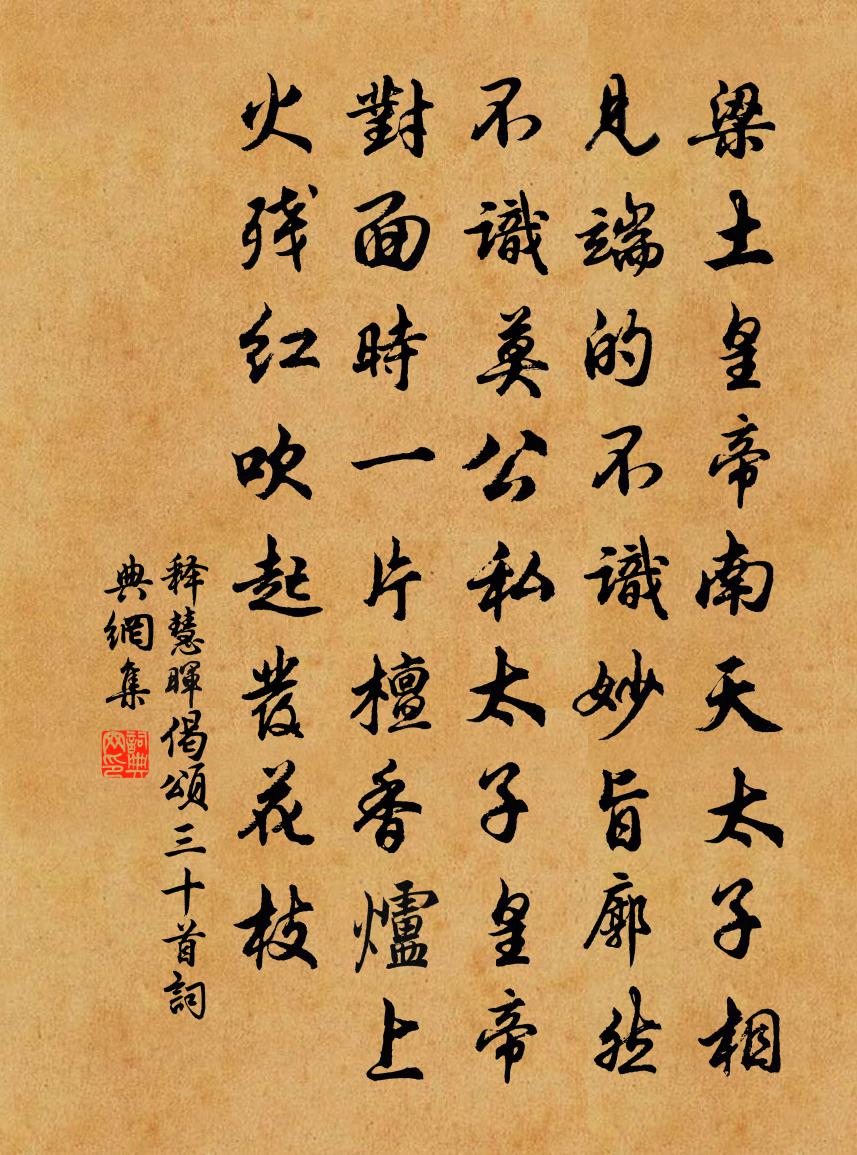 梁土皇帝南天太子相
見端的不識妙旨廓然
不識莫公私太子皇帝
對面時一片檀香爐上
火残红吹起發花枝
释慧暉偈頌三十首詞
典網集
詞典
网印